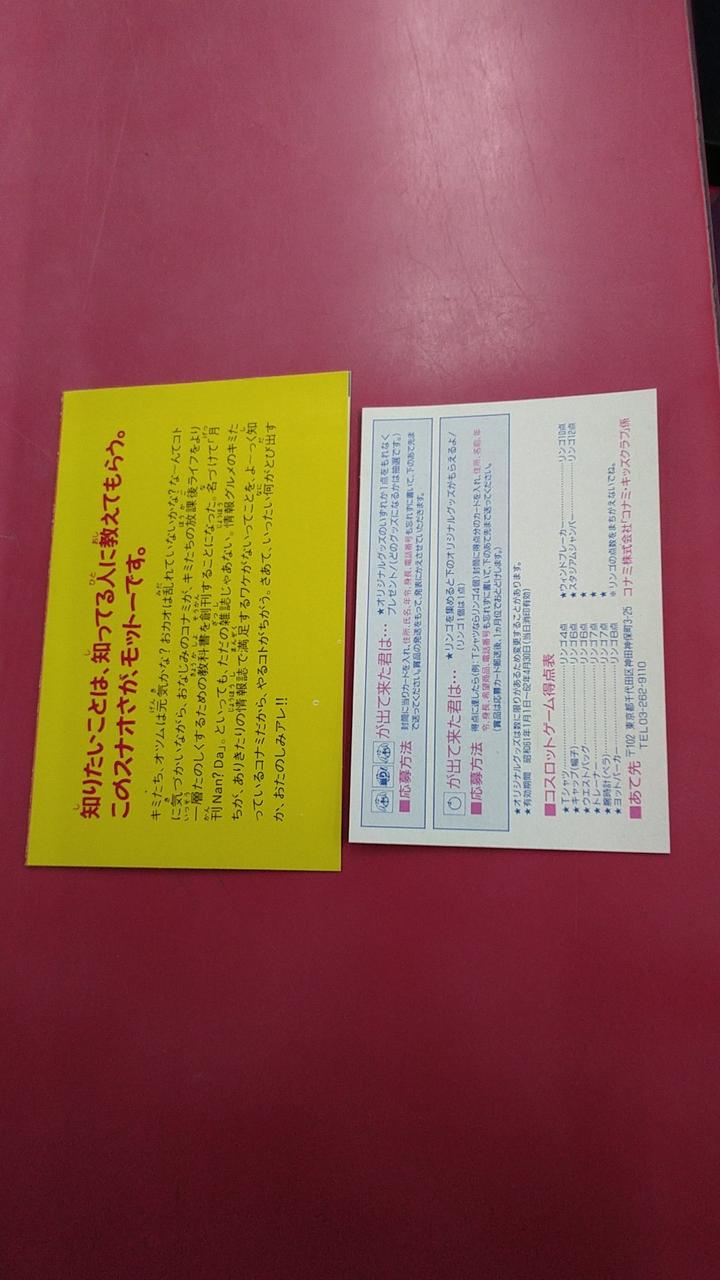 知りたいことは、知ってる人に教えてもらう。
このスナオさが、モットーです。
キミたち、オツムは元気かな?おカオは乱れていないかな?なーんてコト
に気づかいながら、おなじみのコナミが、キミたちの放課後ライフをより
一層たのしくするための教科書を創刊することになった。名づけて「月
刊Nan? Da」。といっても、ただの雑誌じゃあない。情報グルメのキミた
ちが、ありきたりの情報誌で満足するワケがないってことを、よーっく知
っているコナミだから、やるコトがちがう。さあて、いったい何がとび出す
か、おたのしみアレ!!
が出て来た君は…
★オリジナルグッズのいずれか1点をもれなく
プレゼント/(どのグッズになるかは抽選です。)
■応募方法
封筒に当りカードを入れ、住所、氏名、年令、身長、電話番号も忘れずに書いて、下のあて先ま
で送ってください。賞品の発送をもって、発表にかえさせていただきます。
が出て来た君は…
★リンゴを集めると下のオリジナルグッズがもらえるよ/
(リンゴ1個は1点)
■応募方法
得点に達したら(例:TシャツならリンゴA4個)封筒に得点分のカードを入れ、住所、名前、年
令、身長、希望商品、電話番号も忘れずに書いて、下のあて先まで送ってください。
(賞品は応募カード郵送後、1ヵ月位でおとどけします。)
★オリジナルグッズは数に限りがあるため変更することがあります。
★有効期間 昭和61年1月1日〜62年4月30日(当日消印有効)
■コスロットゲーム得点表
★Tシャツ……リンゴ4点
★キャップ(帽子)……リンゴ6点
★ウエストバッグ……リンゴ6点
★トレーナー……リンゴ7点
★腕時計(ペラ)……リンゴ7点
★ヨットパーカー……リンゴ8点
★ウィンドブレーカー……リンゴ10点
★スタジアムジャンパー……リンゴ12点
※リンゴの点数をまちがえないでね。
■あて先 〒102 東京都千代田区神田神保町3-25 コナミ株式会社「コナミ・キッズクラブ」係
TEL 03-262-9110